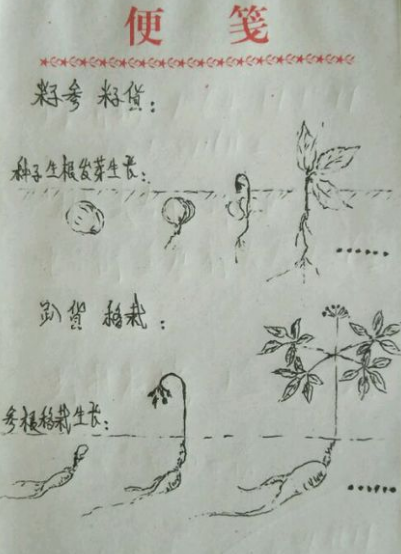 便 笺
籽参 籽货：
种子生根发芽生长：
趴货 移栽：
参根移栽生长：